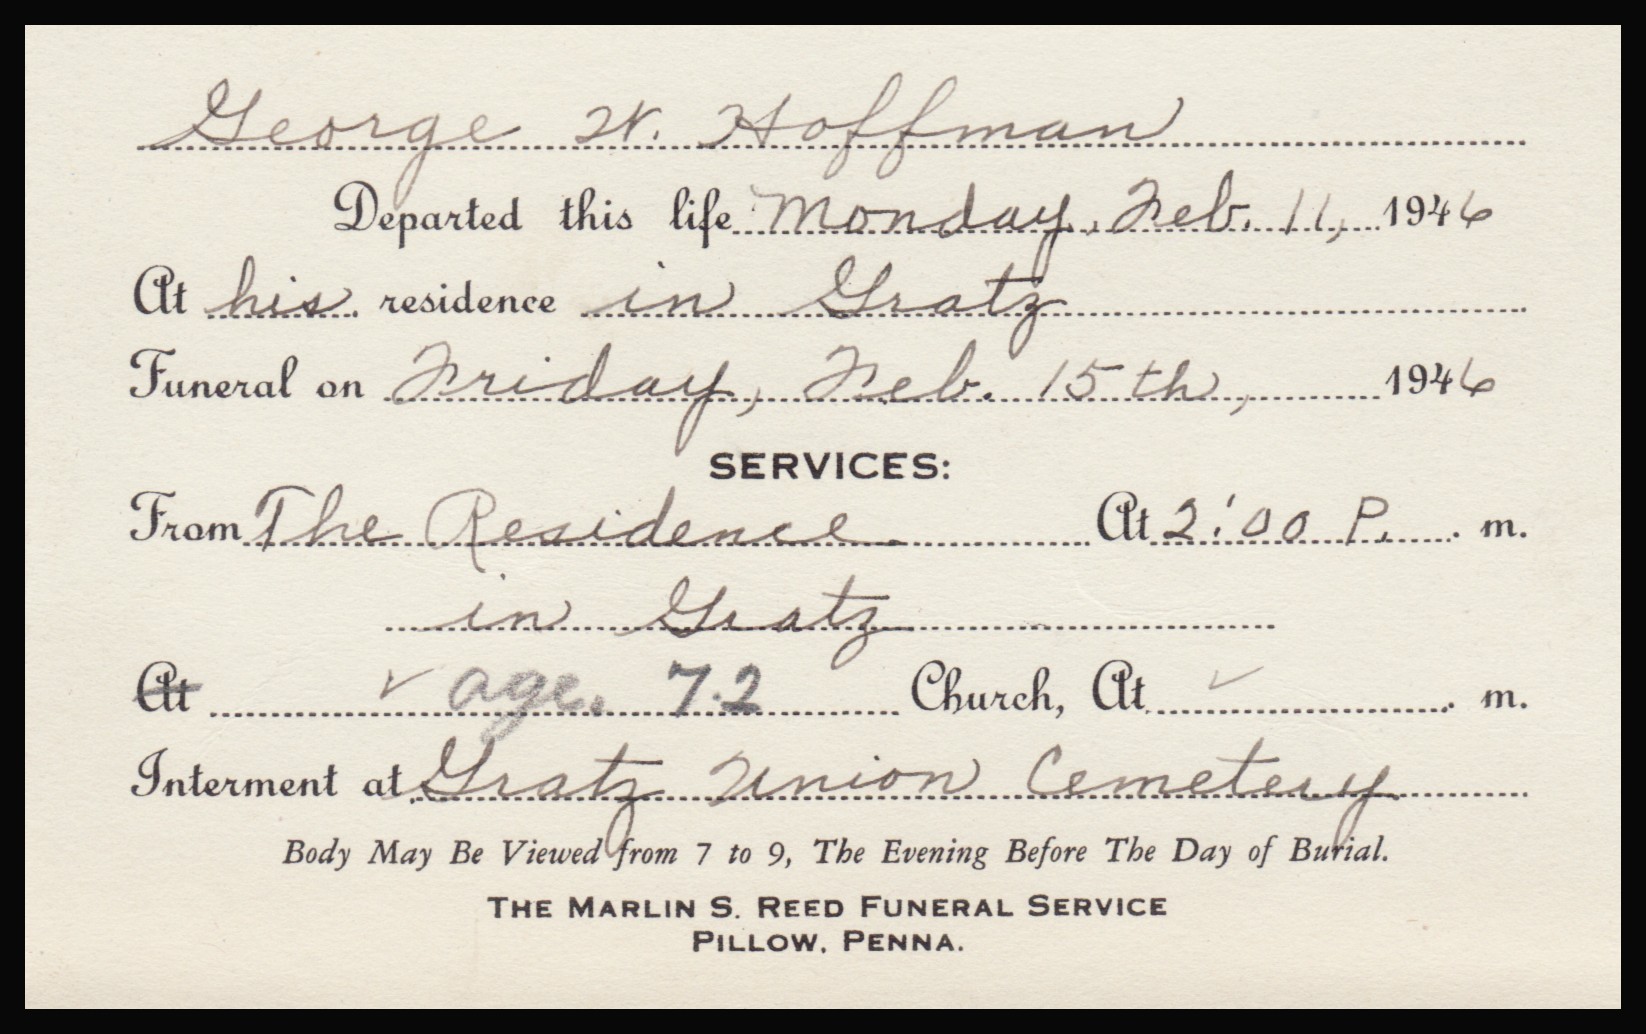 George W. Hoffman
Departed this life Monday, Feb. 11, 1946
At his residence in Gratz
Funeral on Friday, Feb. 15th, 1946
SERVICES:
From The Residence At 2:00 P. m.
in Gratz
At ✓ age. 72 Church, At ✓ . m.
Interment at Gratz Union Cemetery
Body May Be Viewed from 7 to 9, The Evening Before The Day of Burial.
THE MARLIN S. REED FUNERAL SERVICE
PILLOW, PENNA.